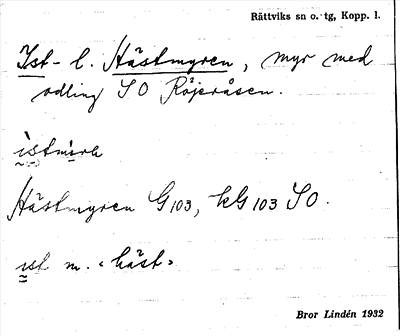 Rättviks sn o. tg, Kopp. l.
Ist- l. Hästmyren, myr med
odling SO Röjeråsen.
ìstmìrn
Hästmyren G103, kG 103 SO.
ist m. ‹häst›
Bror Lindén 1932